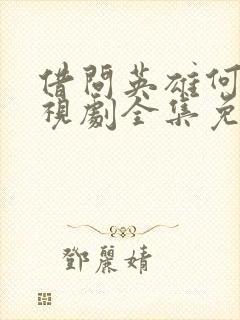 借問英雄何
視劇全集免
鄧麗婧